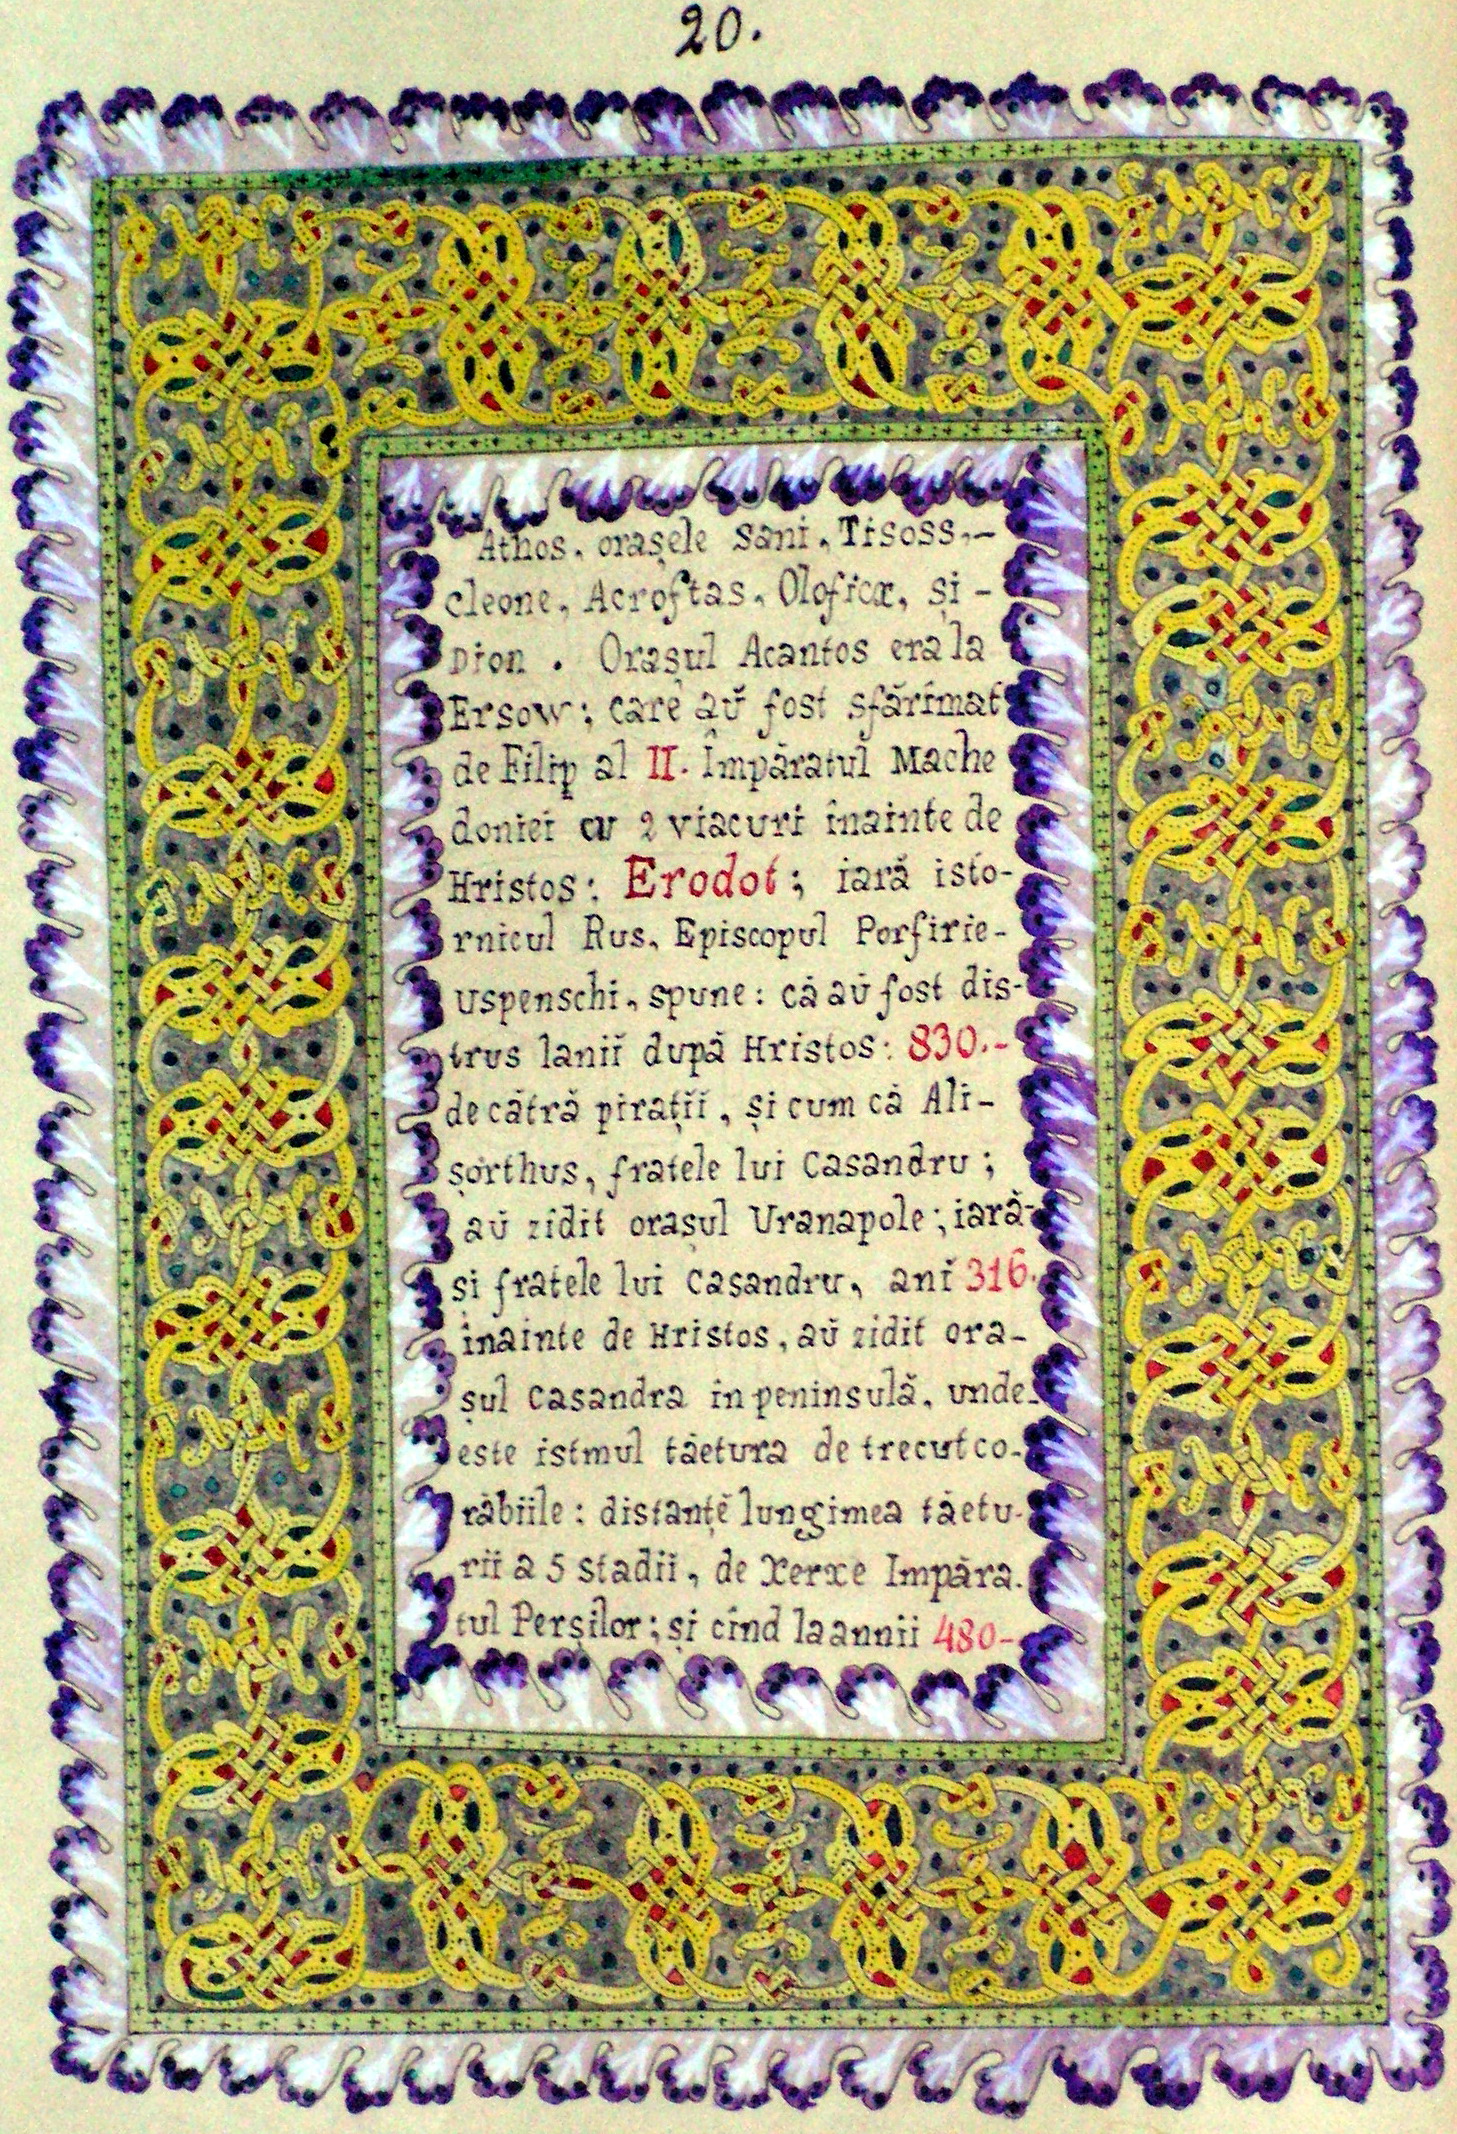 20.
Athos, orașele Sani, Tisoss,-
cleone, Acroftas, Oloficæ, și-
Dion. Orașul Acantos era la
Ersow; care aŭ fost sfărîmat
de Filip al II. Împăratul Mache
doniei cu 2 viacuri înainte de
Hristos: Erodot; iară isto-
rnicul Rus, Episcopul Porfirie-
uspenschi, spune: că aŭ fost dis-
trus laniĭ după Hristos: 830.-
de cătră pirațiĭ, și cum că Ali-
sorthus, fratele lui Casandru;
aŭ zidit orașul Uranapole; iară-
și fratele lui Casandru, anĭ 316.
înainte de Hristos, aŭ zidit ora-
șul Casandra în peninsulă, unde-
este istmul tăetura de trecut co-
răbiile: distanțĕ lungimea tăetu-
riĭ a 5 stadiĭ, de Xerxe Impăra.
tul Perșilor; și cînd la annii 480-